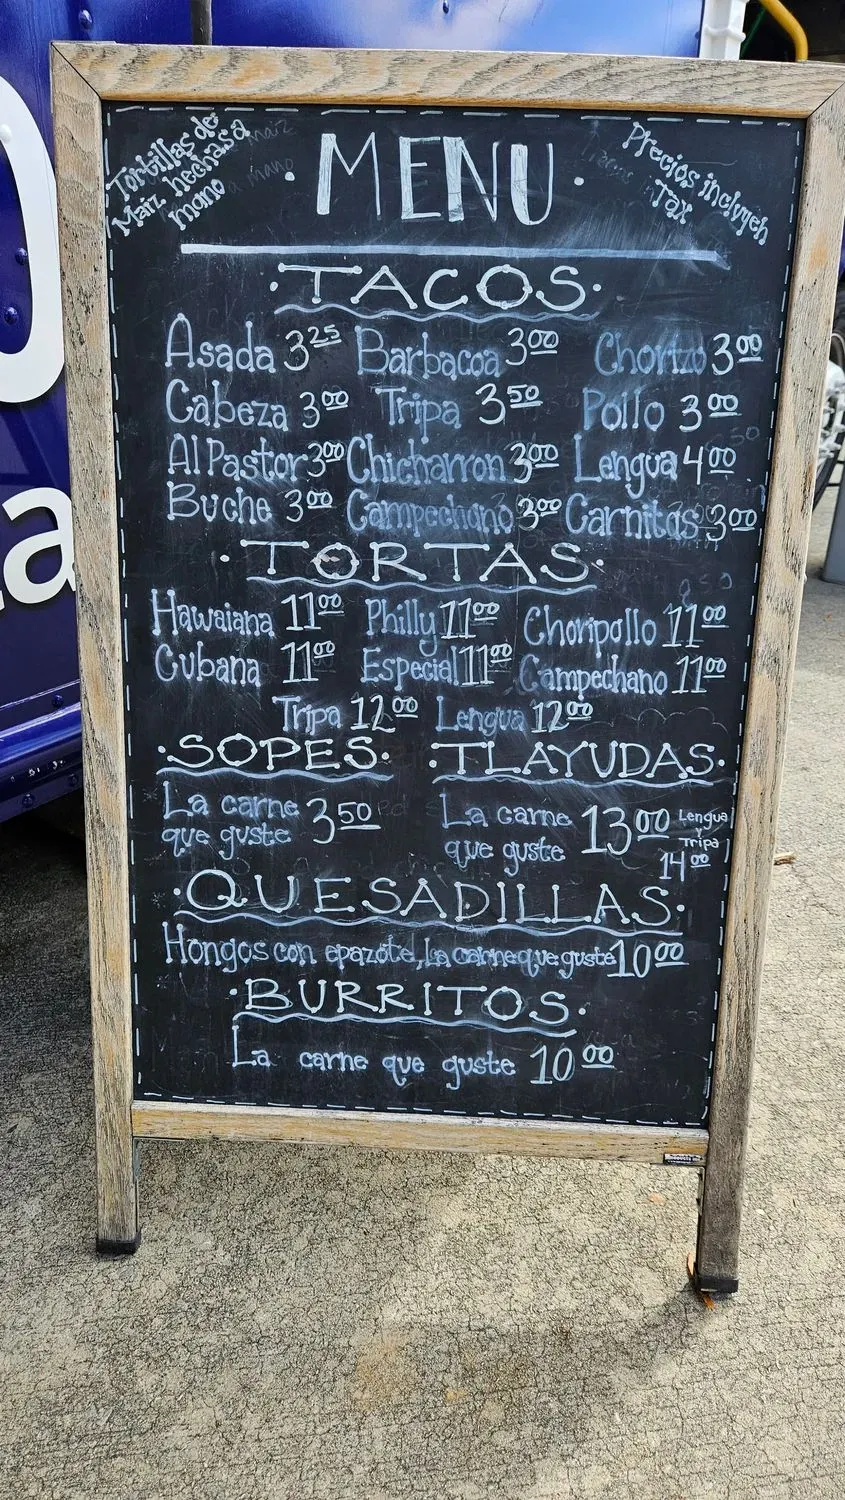 Tortillas de
Maiz hechas a
mano
MENU
Precios incluyen
Tax
TACOS
Asada 3.25 Barbacoa 3.00 Chorizo 3.00
Cabeza 3.00 Tripa 3.50 Pollo 3.00
Al Pastor 3.00 Chicharron 3.00 Lengua 4.00
Buche 3.00 Campechano 3.00 Carnitas 3.00
TORTAS
Hawaiana 11.00 Philly 11.00 Choripollo 11.00
Cubana 11.00 Especial 11.00 Campechano 11.00
Tripa 12.00 Lengua 12.00
SOPES
La carne
que guste 3.50
TLAYUDAS
La carne
que guste 13.00
Lengua
y
Tripa
14.00
QUESADILLAS
Hongos con epazote, La carne que guste 10.00
BURRITOS
La carne que guste 10.00